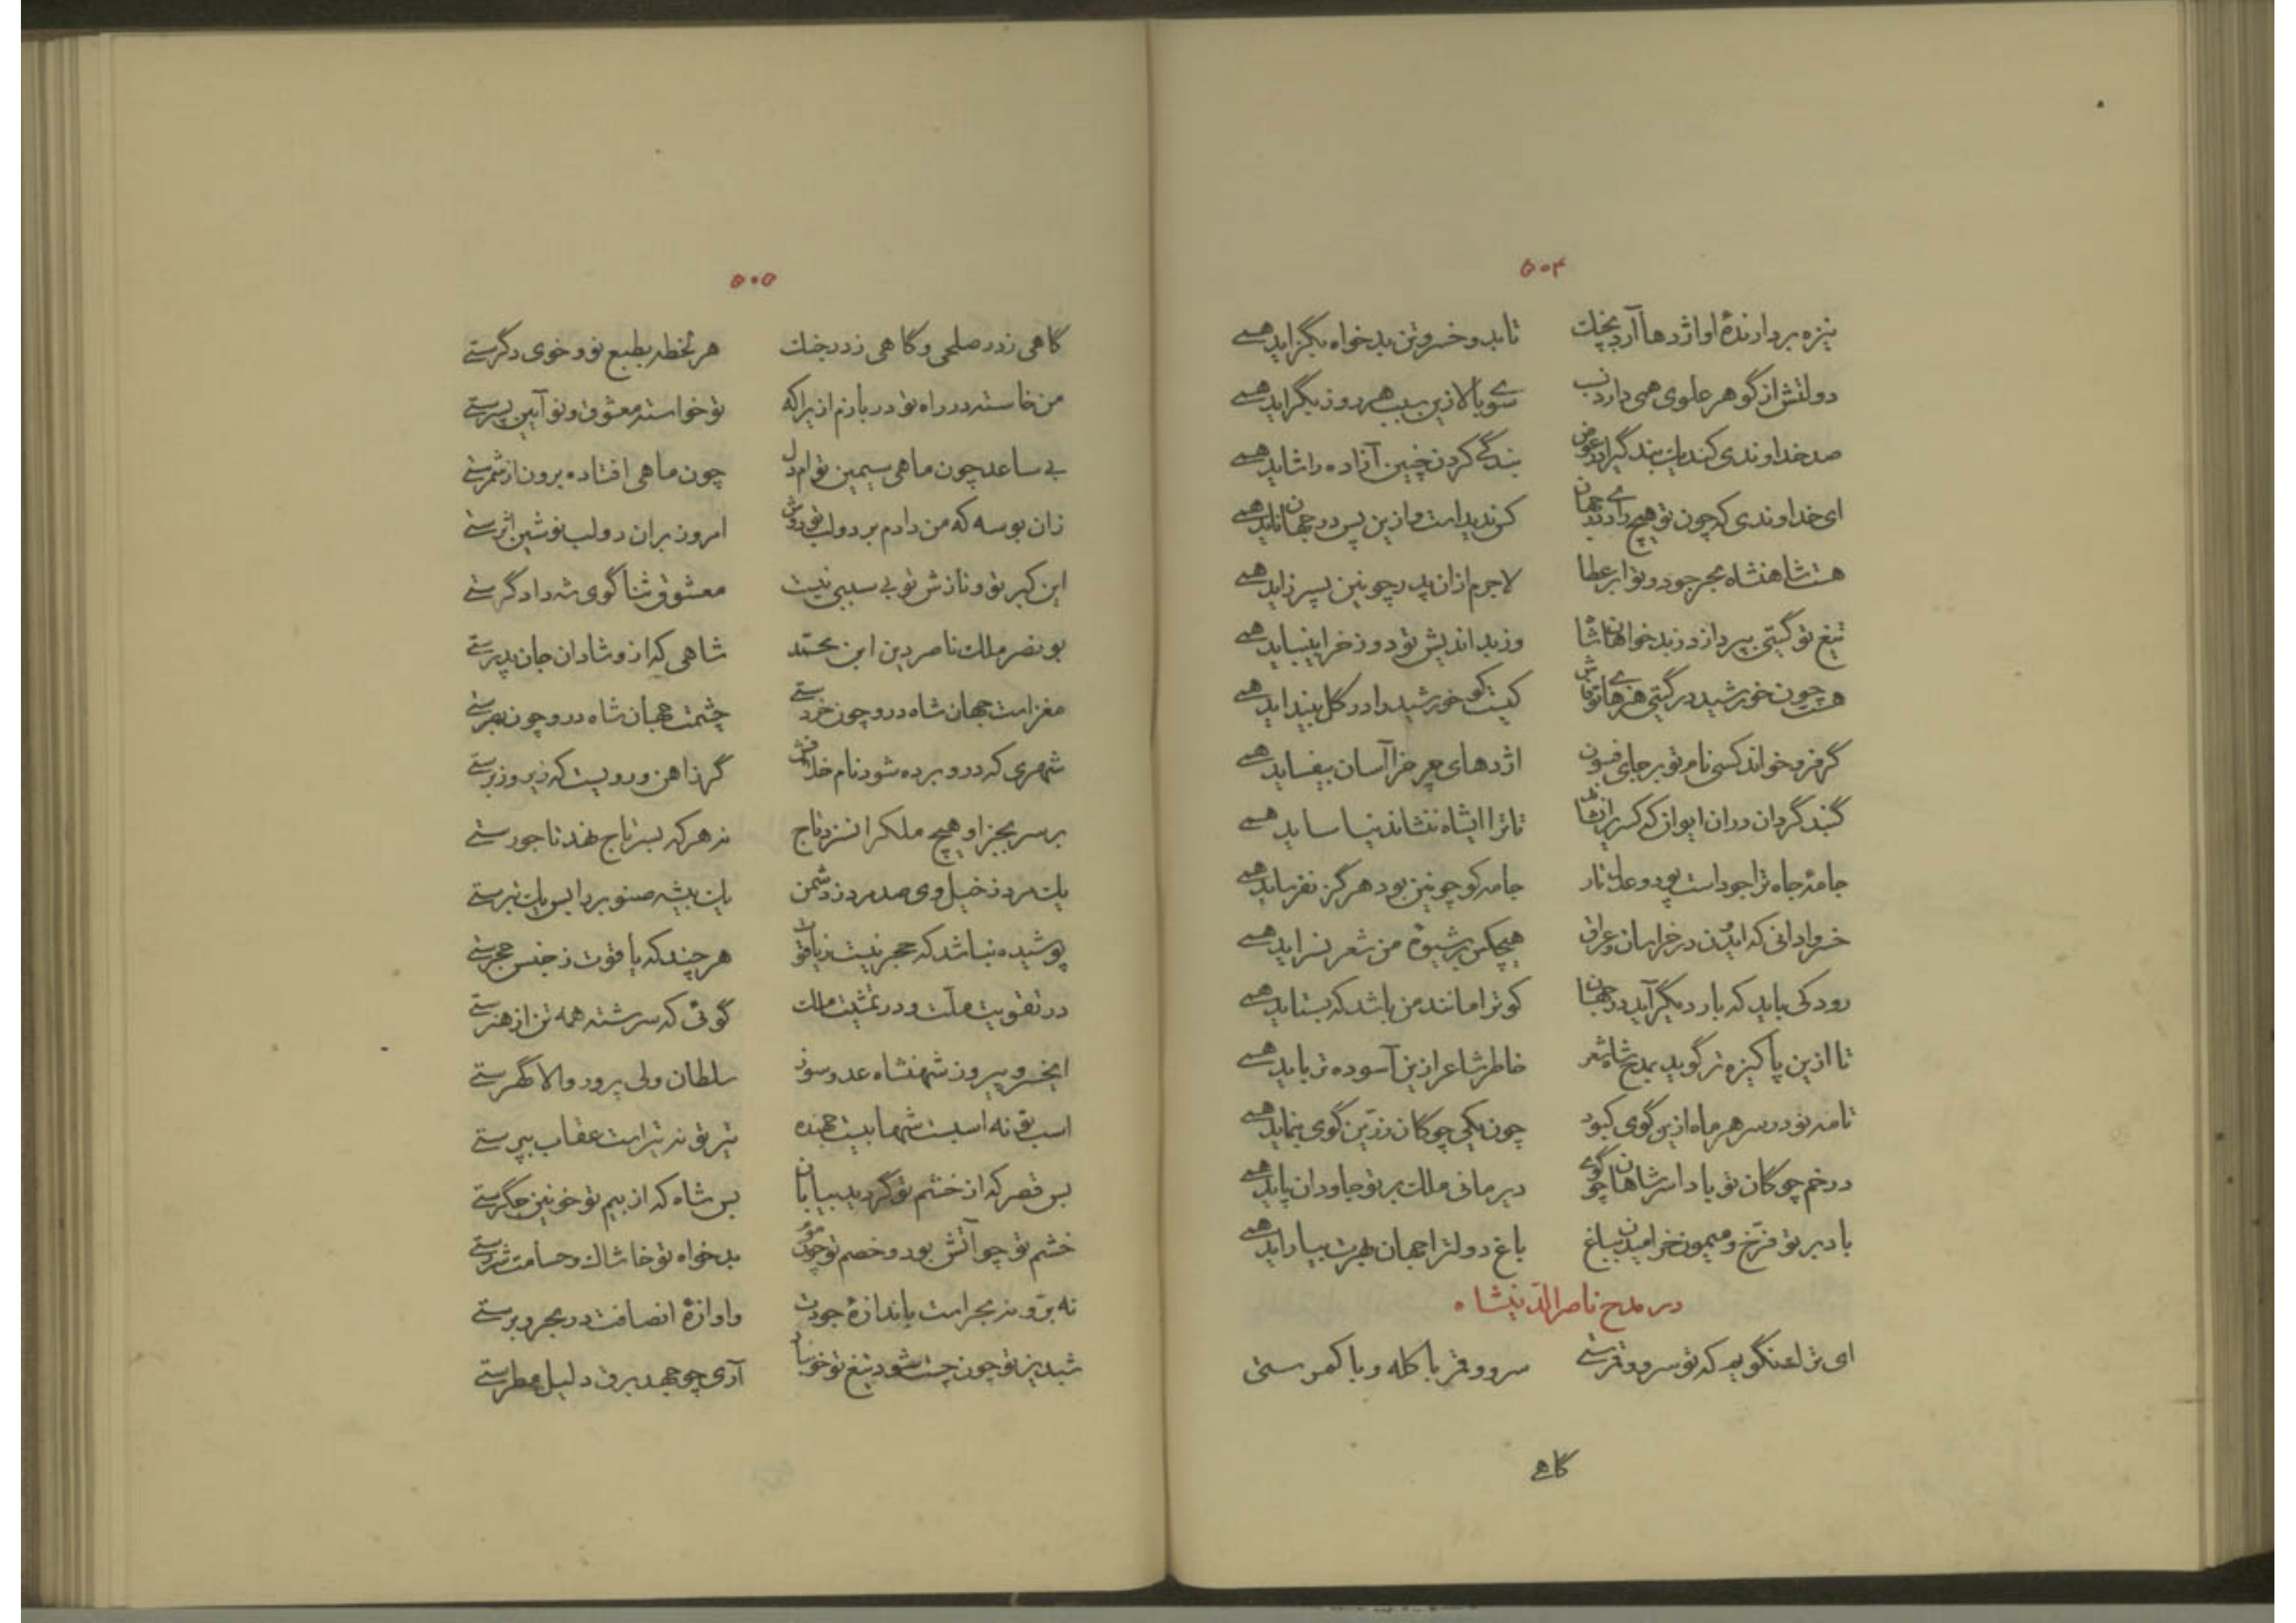 ۵۰۴
نیزه بردارندهٔ او اژدها آرد بچنك تابد و خسرو تن بدخواه بگزاید همی
دولتش از گوهر علوی همی دارد نسب سوی بالا زین سبب هر روز بگراید همی
صد خداوندی کند یك بندگی را در عوض بندگی کردن چنین آزاده را شاید همی
ای خداوندی که چون تو هیچ رادی در جهان کس ندیداست و ازین پس در جهان ناید همی
هست شاهنشاه بحر جود و تو ابر عطا لاجرم از ان پدر چونین پسر زاید همی
تیغ تو گیتی بپردازد ز بدخواهان شاه وز بد اندیش تو دوزخ را بینباید همی
هست چون خورشید در گیتی هنرهای تو فاش کیست کو خورشید را در گل بینداید همی
گر فرو خواند کسی نام تو بر جای فسون اژدهای چرخ را آسان بیفساید همی
گنبد گردان دران ایوان که کسری را نشاند تا ترا ایشاه ننشاند نیاساید همی
جامهٔ جاه ترا جود است پود و عدل تار جامه کو چونین بود هرگز نفرساید همی
خسروا دانی که ایدون در خراسان و عراق هیچکس بر شیوهٔ من شعر نسراید همی
رودکی باید که بار دیگر آید در جهان کو ترا مانند من باشد که بستاید همی
تا ازین پاکیزه تر گوید بمدح شاه شعر خاطر شاعر ازین آسوده تر باید همی
تا مه نو در سر هر ماه ازین گوی کبود چون یکی چوگان زرین گوی بنماید همی
در خم چوگان تو بادا سر شاهان چو گوی دیر مانی ملك بر تو جاودان پاید همی
باد بر تو فرخ و میمون خرامیدن بباغ باغ دولترا جهان بهرت بیاراید همی
در مدح ناصرالدینشاه
ای ترك نگویم که تو سرو و قمرستی سرو و قمر با کله و با کمرستی
گاهی
۵۰۵
گاهی ز در صلحی و گاهی ز در جنك هر لحظه بطبع نو و خوی دگرستی
من خاسته در راه تو در بازم ازیراکه نو خواسته معشوق و نو آیین پسرستی
بی ساعد چون ماهی سیمین تو ام دل چون ماهی افتاده برون از شمرستی
زان بوسه که من دادم بر دو لب تو دوش امروز بران دو لب نوشین اثرستی
این کبر تو و نازش تو بی سببی نیست معشوق ثنا گوی شه دادگرستی
بو نصر ملك ناصر دین ابن محمد شاهی که از و شادان جان پدرستی
مغز است جهان شاه درو چون خردستی چشمت جهان شاه درو چون بصرستی
شهری که درو برده شود نام خلافش گر ز اهن و رویست که زیر و زبرستی
بر سر بجز او هیچ ملك را نسزد تاج نه هر که بسر تاج نهد تاجورستی
یك مرد ز خیل وی صد مرد ز دشمن یك بیشه صنوبر را بس یك تبرستی
پوشیده نباشد که حجر نیست ز یاقوت هر چند که یاقوت ز جنس حجرستی
در تقویت ملت و در تمشیت ملك گوئی که سرشته همه تن از هنرستی
ایخسرو پیروز شهنشاه عدو سوز سلطان ولی پرور والا گهرستی
اسب تو نه اسبست شهابیست جهنده تیر تو نه تیر است عقاب بپرستی
بس قصر که از خشم تو گردید بیابان بس شاه که از بیم تو خونین جگرستی
خشم تو چو آتش بود و خصم تو چون موم بدخواه تو خاشاك و حسامت شررستی
نه بر و نه بحر است باندازهٔ جودت واوازهٔ انصافت در بحر و برستی
شبدیز تو چون چست شود تیغ تو خونبار آری چو جهد برق دلیل مطرستی